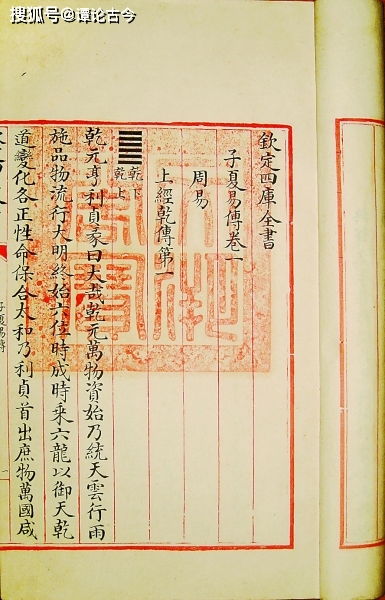 搜狐号@谭论古今
欽定四庫全書
子夏易傳卷一
周易
上經乾傳第一
乾下
乾上
乾元亨利貞彖曰大哉乾元萬物資始乃統天雲行雨
施品物流行大明終始六位時成時乘六龍以御天乾
道變化各正性命保合太和乃利貞首出庶物萬國咸
子夏易傳